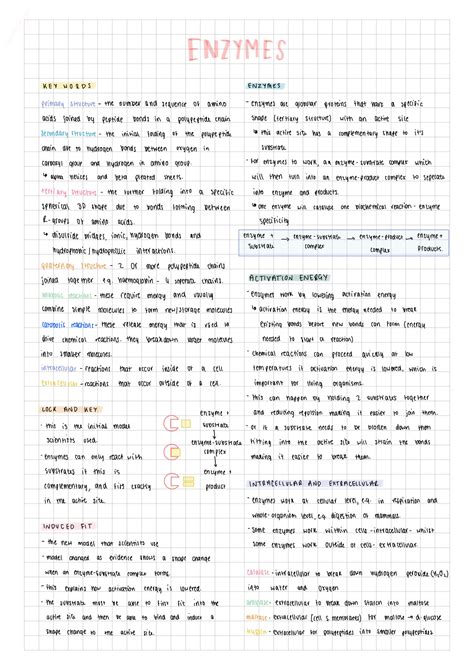 ENZYMES
KEY WORDS
primary structure - the number and sequence of amino
acids joined by peptide bonds in a polypeptide chain
secondary structure - the initial folding of the polypeptide
chain due to hydrogen bonds between oxygen in
carboxyl group and hydrogen in amino group.
↳ alpha helices and beta pleated sheets.
tertiary structure - the further folding into a specific
spherical 3D shape due to bonds forming between
R-groups of amino acids.
↳ disulfide bridges, ionic, hydrogen bonds and
hydrophobic/hydrophilic interactions.
quaternary structure - 2 or more polypeptide chains
joined together e.g. haemoglobin - 4 separate chains.
anabolic reactions - these require energy and usually
combine simple molecules to form new/storage molecules
catabolic reactions - these release energy that is used to
drive chemical reactions. they breakdown larger molecules
into smaller molecules.
intracellular - reactions that occur inside of a cell
extracellular - reactions that occur outside of a cell.
LOCK AND KEY
· this is the initial model
scientists used.
· enzymes can only react with
substrates if this is
complementary, and fits exactly
in the active site.
enzyme +
substrate
enzyme-substrate
complex
enzyme +
product
INDUCED FIT
· the new model than scientists use
· model changed as evidence shows a shape change
when an enzyme-substrate complex forms.
· this explains how activation energy is lowered.
· the substrate must be able to first fit into the
active site and then be able to bind and induce a
shape change to the active site.
ENZYMES
· enzymes are globular proteins that have a specific
shape (tertiary structure) with an active site
↳ this active site has a complementary shape to its
substrate.
· for enzymes to work, an enzyme-substrate complex which
will then turn into an enzyme-product complex to seperate
into enzyme and products.
↳ one enzyme will catalyse one biochemical reaction - enzyme
specificity
enzyme + substrate → enzyme-substrate complex → enzyme-product complex → enzyme + products.
ACTIVATION ENERGY
· enzymes work by lowering activation energy
↳ activation energy is the energy needed to break
existing bonds before new bonds can form (energy
needed to start a reaction)
· chemical reactions can proceed quickly at low
temperatures if activation energy is lowered, which is
important for living organisms.
· this can happen by holding 2 substrates together
and reducing repulsion making it easier to join them.
· or if a substrate needs to be broken down then
fitting into the active site will strain the bonds
making it easier to break them.
INTRACELLULAR AND EXTRACELLULAR
· enzymes work at cellular level, e.g. in respiration and
whole-organism level, e.g. digestion of mammals.
· some enzymes work within cells - intracellular - whilst
some enzymes work outside of cells - extracellular.
catalase - intracellular to break down hydrogen peroxide (H₂O₂)
into water and oxygen
amylase - extracellular to break down starch into maltose
maltase - extracellular (cell s membranes) for maltose → α-glucose
trypsin - extracellular for polypeptides into smaller polypeptides